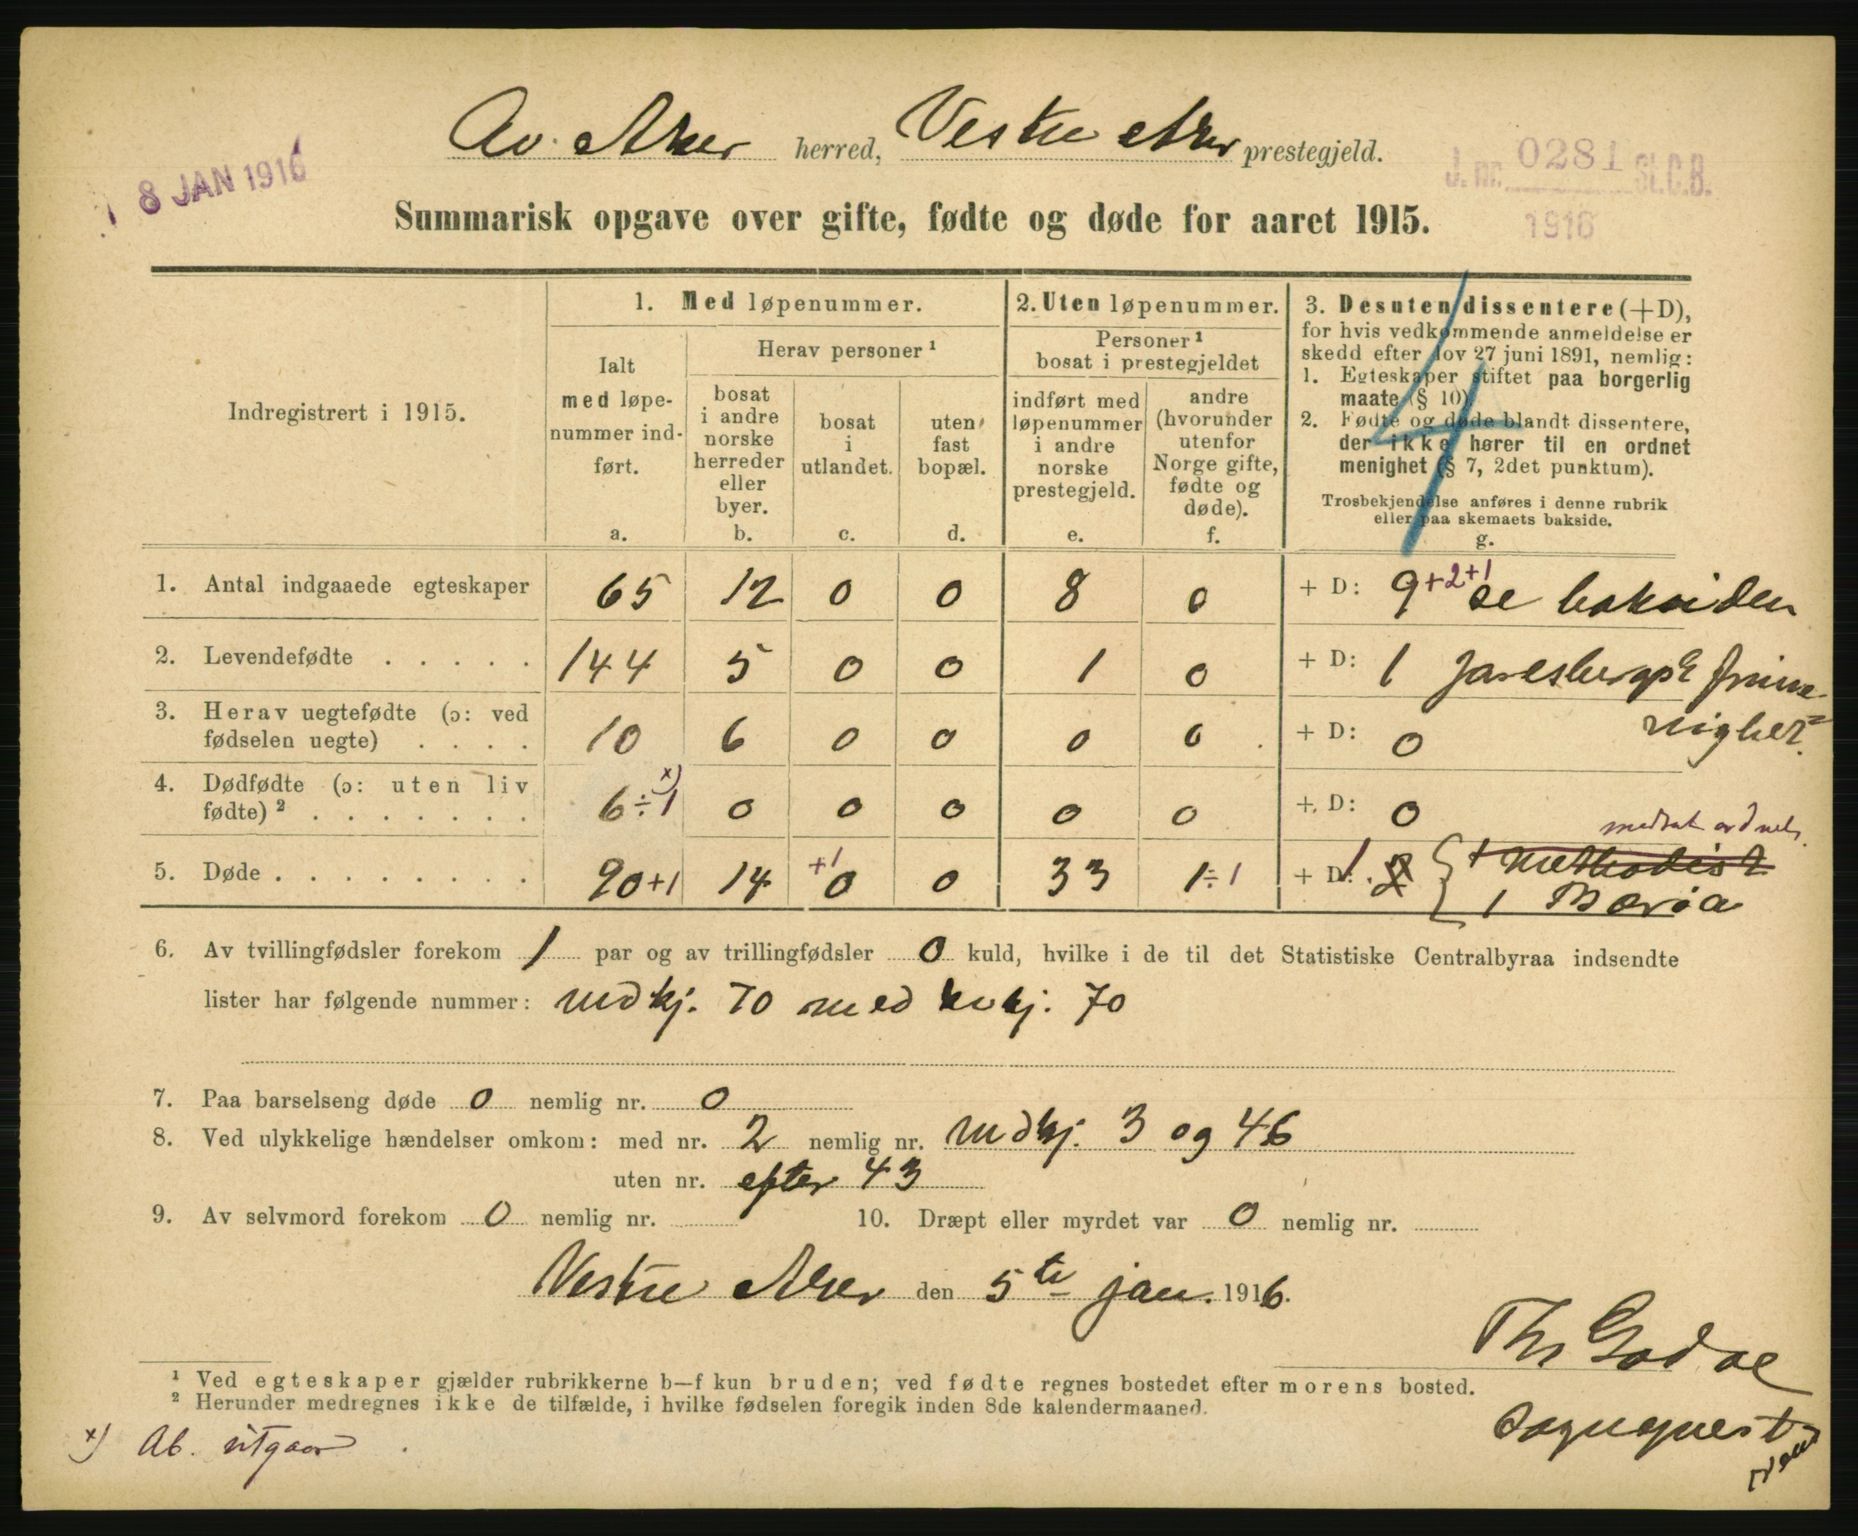 Av Aker herred, Vestre Aker prestegjeld.
8 JAN 1916
J. nr. 0281 St.C.B.
1916
Summarisk opgave over gifte, fødte og døde for aaret 1915.
Indregistrert i 1915.
1. Med løpenummer.
Ialt
med løpe-
nummer ind-
ført.
a.
Herav personer ¹
bosat
i andre
norske
herreder
eller
byer.
b.
bosat
i
utlandet.
c.
uten
fast
bopæl.
d.
2. Uten løpenummer.
Personer ¹
bosat i prestegjeldet
indført med
løpenummer
i andre
norske
prestegjeld.
e.
andre
(hvorunder
utenfor
Norge gifte,
fødte og
døde).
f.
3. Desuten dissentere (+D),
for hvis vedkommende anmeldelse er
skedd efter lov 27 juni 1891, nemlig:
1. Egteskaper stiftet paa borgerlig
maate (§ 10)
2. Fødte og døde blandt dissentere,
der ikke hører til en ordnet
menighet (§ 7, 2det punktum).
Trosbekjendelse anføres i denne rubrik
eller paa skemaets bakside.
g.
4
1. Antal indgaaede egteskaper 65 12 0 0 8 0 + D: 9 +2+1 se baksiden
2. Levendefødte . . . . . 144 5 0 0 1 0 + D: 1 Jarlsbergsk frime-
nighet.
3. Herav uegtefødte (ɔ: ved
fødselen uegte) . . . . 10 6 0 0 0 0 + D: 0
4. Dødfødte (ɔ: uten liv
fødte) ² . . . . . . . 6÷1 x) 0 0 0 0 0 + D: 0
5. Døde . . . . . . . . 90+1 14 +1 0 0 33 1÷1 + D: 1 2 { 1 Methodist
1 Bærøa
6. Av tvillingfødsler forekom 1 par og av trillingfødsler 0 kuld, hvilke i de til det Statistiske Centralbyraa indsendte
lister har følgende nummer: mdkj. 70 med kvkj. 70
7. Paa barselseng døde 0 nemlig nr. 0
8. Ved ulykkelige hændelser omkom: med nr. 2 nemlig nr. mdkj. 3 og 46
uten nr. efter 43
9. Av selvmord forekom 0 nemlig nr. 10. Dræpt eller myrdet var 0 nemlig nr.
Vestre Aker den 5te jan. 1916.
Th. Godøe
Sogneprest
¹ Ved egteskaper gjælder rubrikkerne b—f kun bruden; ved fødte regnes bostedet efter morens bosted.
² Herunder medregnes ikke de tilfælde, i hvilke fødselen foregik inden 8de kalendermaaned.
x) Ab. utgaar